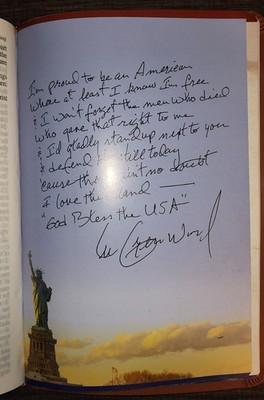 I'm proud to be an American
where at least I know I'm free
& I won't forget the men who died
who gave that right to me
& I'd gladly stand up next to you
& defend still today
'cause ain't no doubt
I love the land
"God Bless the USA"
Lee Greenwood